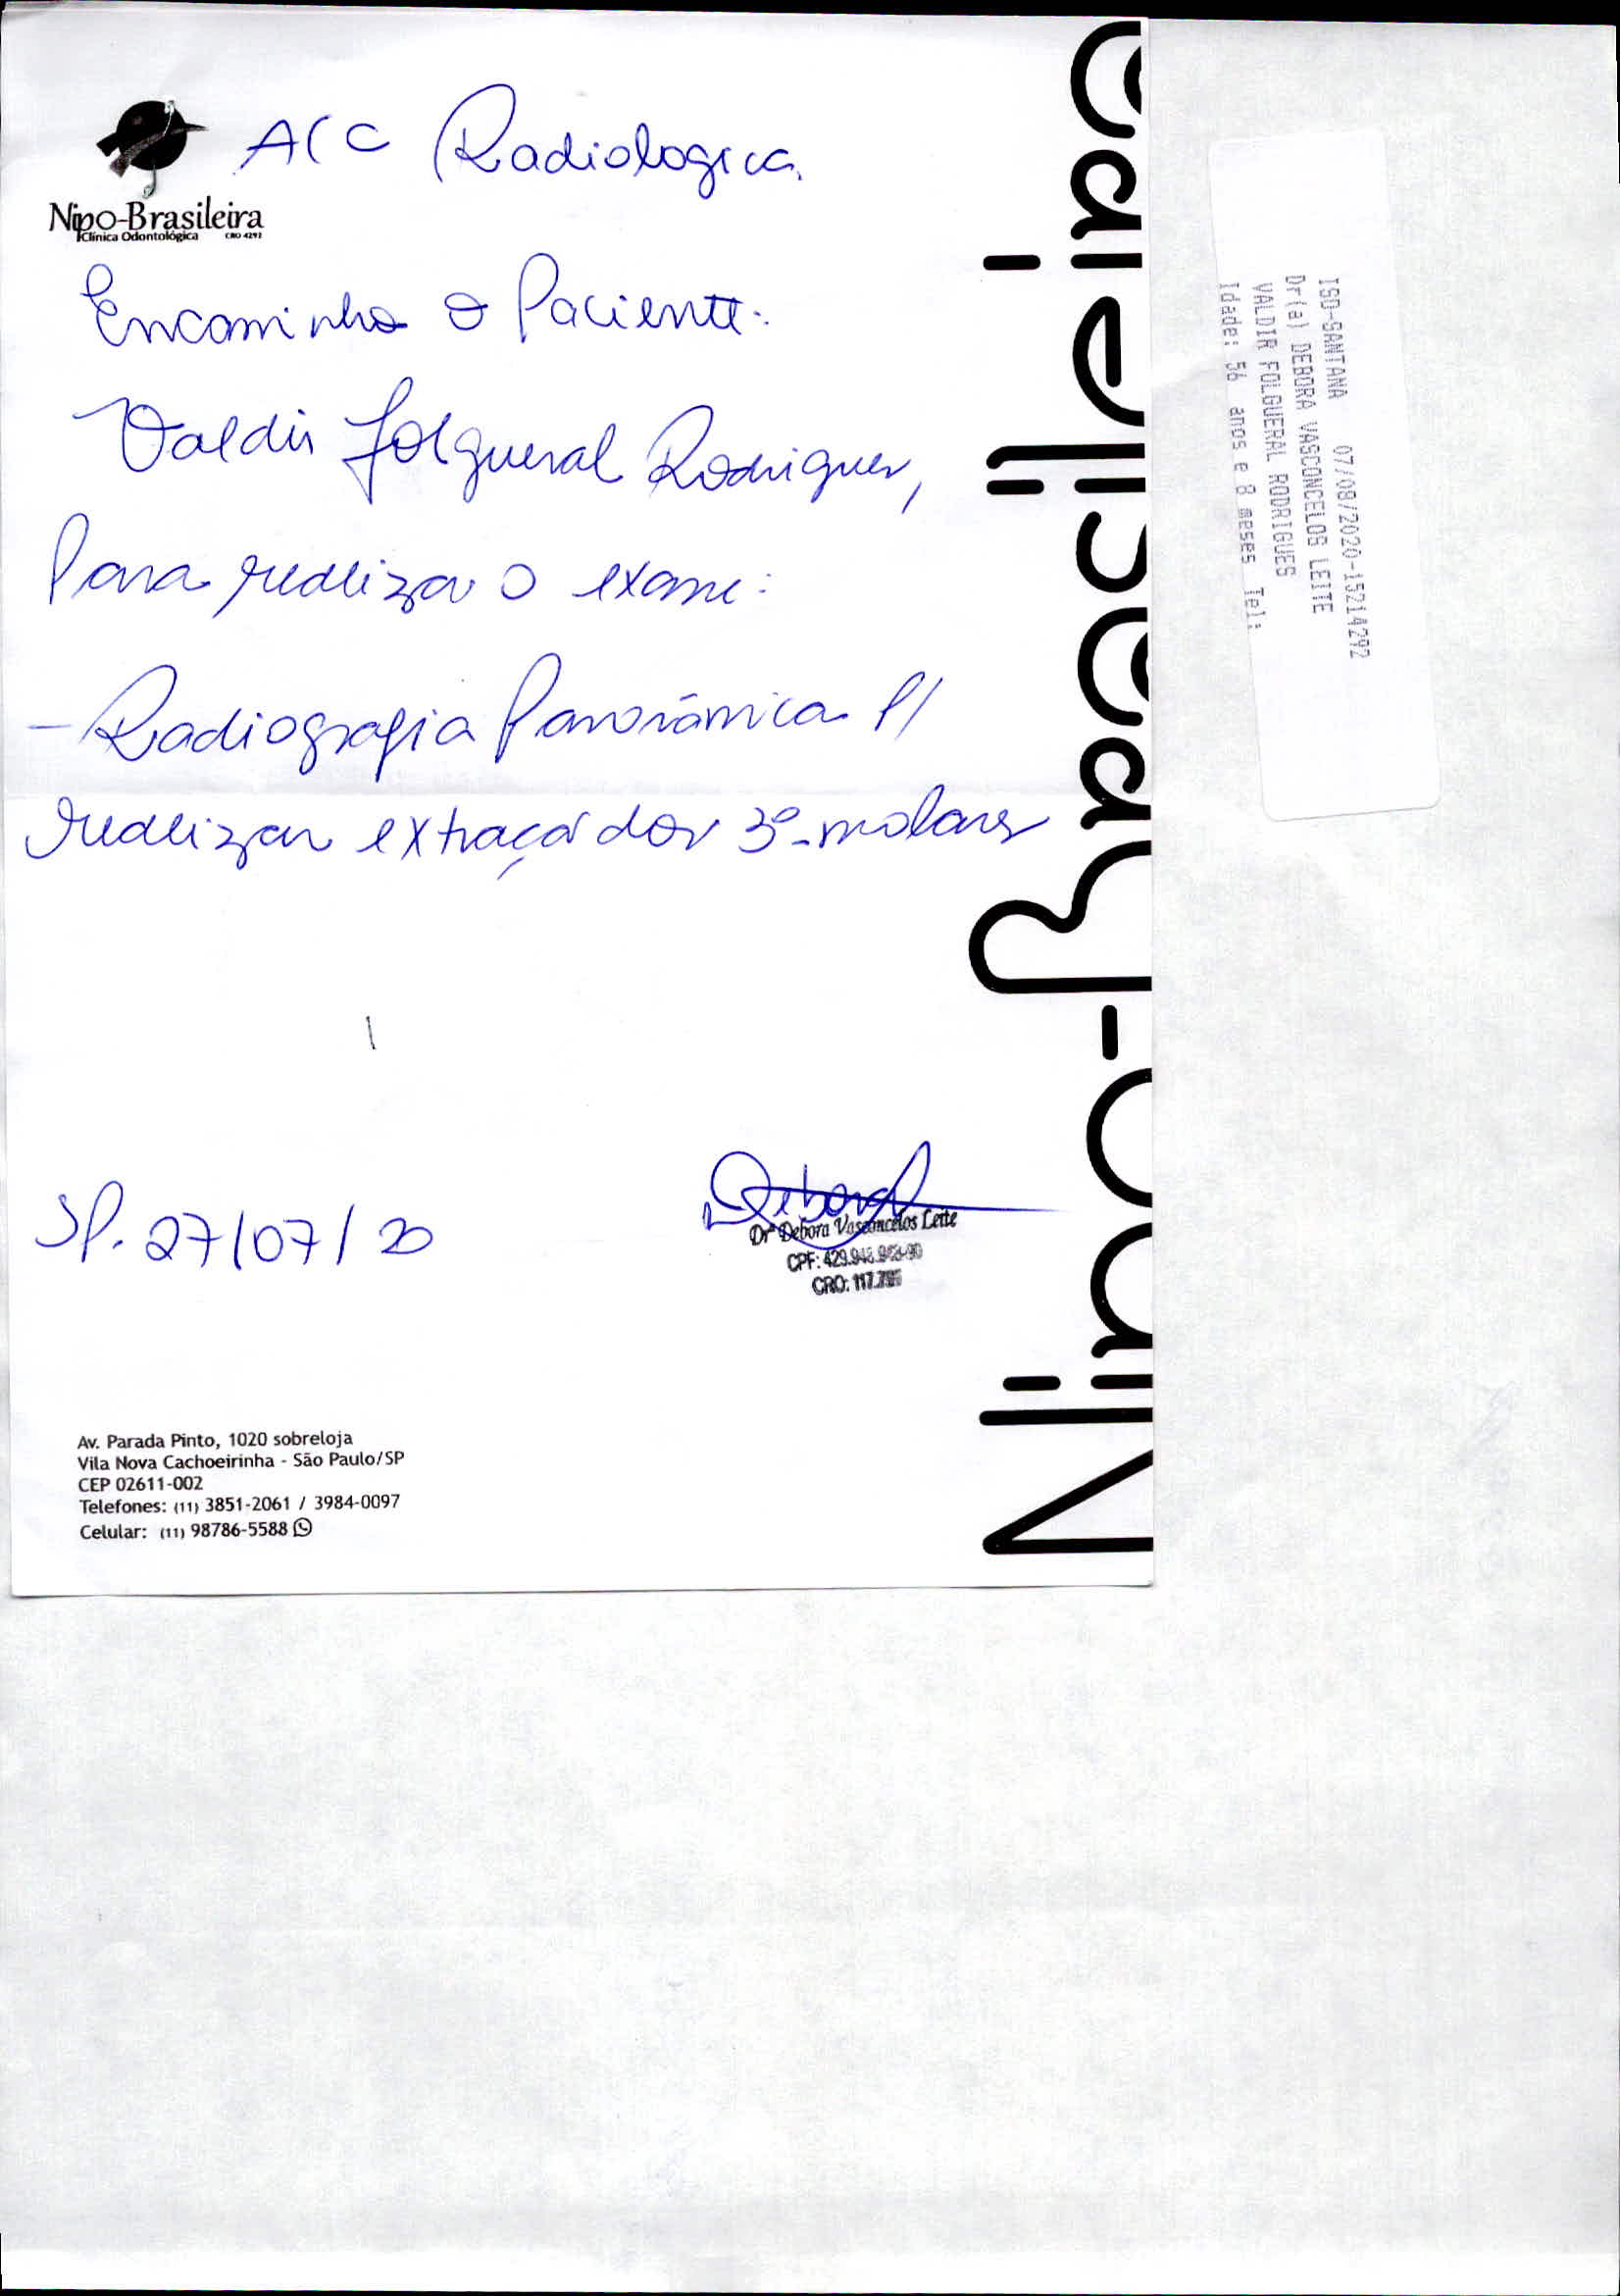 A/C Radiologica.
Nipo-Brasileira
Clínica Odontológica CRO 4292
Encaminho o Paciente:
Valdir Folgueral Rodrigues,
Para realizar o exame:
- Radiografia Panorâmica P/
realizar extração dos 3º molares
SP. 27/07/20
Debora
Drª Debora Vasconcelos Leite
CPF: 429.948.948-90
CRO: 117.795
Av. Parada Pinto, 1020 sobreloja
Vila Nova Cachoeirinha - São Paulo/SP
CEP 02611-002
Telefones: (11) 3851-2061 / 3984-0097
Celular: (11) 98786-5588
Nipo-Brasileira
ISO-SANTANA 07/08/2020-15214292
Dr(a) DEBORA VASCONCELOS LEITE
VALDIR FOLGUERAL RODRIGUES
Idade: 56 anos e 8 meses Tel: